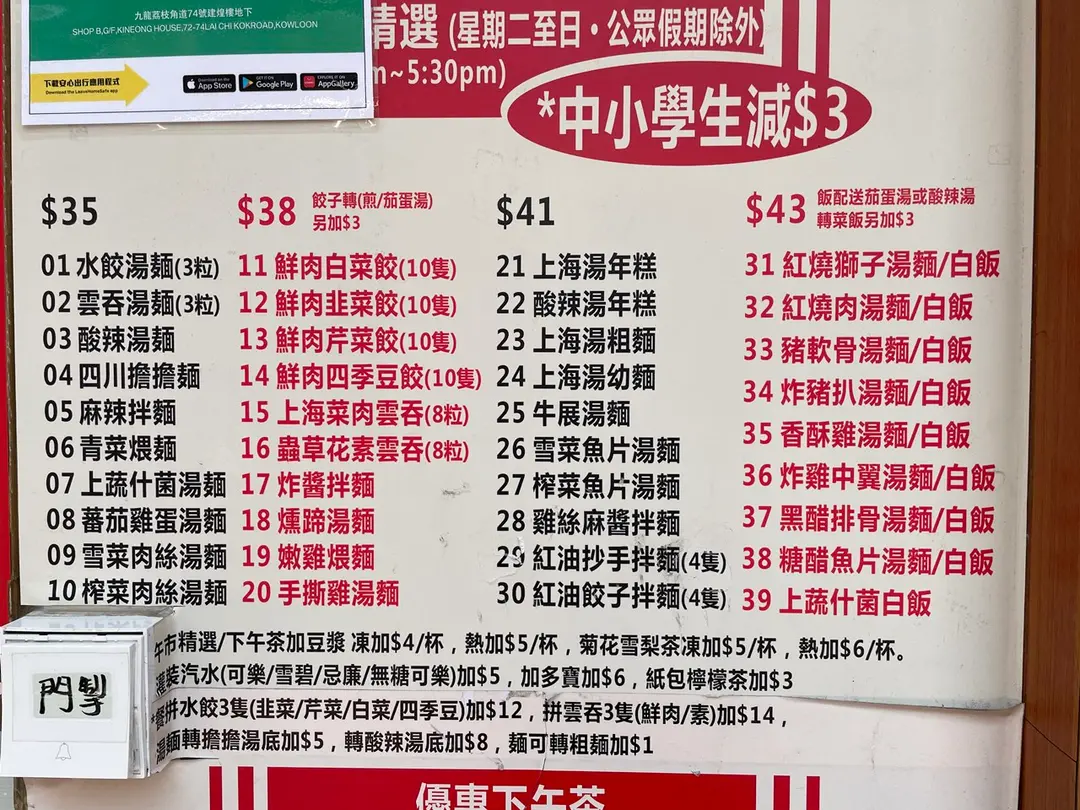 九龍荔枝角道74號建煌樓地下
SHOP B,G/F,KINEONG HOUSE,72-74LAI CHI KOKROAD,KOWLOON
下載安心出行應用程式
Download the LeaveHomeSafe app
Download on the App Store
GET IT ON Google Play
EXPLORE IT ON AppGallery
精選 (星期二至日・公眾假期除外)
m~5:30pm)
*中小學生減$3
$35
01 水餃湯麵(3粒)
02 雲吞湯麵(3粒)
03 酸辣湯麵
04 四川擔擔麵
05 麻辣拌麵
06 青菜煨麵
07 上蔬什菌湯麵
08 蕃茄雞蛋湯麵
09 雪菜肉絲湯麵
10 榨菜肉絲湯麵
$38 餃子轉(煎/茄蛋湯)
另加$3
11 鮮肉白菜餃(10隻)
12 鮮肉韭菜餃(10隻)
13 鮮肉芹菜餃(10隻)
14 鮮肉四季豆餃(10隻)
15 上海菜肉雲吞(8粒)
16 蟲草花素雲吞(8粒)
17 炸醬拌麵
18 燻蹄湯麵
19 嫩雞煨麵
20 手撕雞湯麵
$41
21 上海湯年糕
22 酸辣湯年糕
23 上海湯粗麵
24 上海湯幼麵
25 牛展湯麵
26 雪菜魚片湯麵
27 榨菜魚片湯麵
28 雞絲麻醬拌麵
29 紅油抄手拌麵(4隻)
30 紅油餃子拌麵(4隻)
$43 飯配送茄蛋湯或酸辣湯
轉菜飯另加$3
31 紅燒獅子湯麵/白飯
32 紅燒肉湯麵/白飯
33 豬軟骨湯麵/白飯
34 炸豬扒湯麵/白飯
35 香酥雞湯麵/白飯
36 炸雞中翼湯麵/白飯
37 黑醋排骨湯麵/白飯
38 糖醋魚片湯麵/白飯
39 上蔬什菌白飯
午市精選/下午茶加豆漿 凍加$4/杯，熱加$5/杯，菊花雪梨茶凍加$5/杯，熱加$6/杯。
罐裝汽水(可樂/雪碧/忌廉/無糖可樂)加$5，加多寶加$6，紙包檸檬茶加$3
*餐拼水餃3隻(韭菜/芹菜/白菜/四季豆)加$12，拼雲吞3隻(鮮肉/素)加$14，
湯麵轉擔擔湯底加$5，轉酸辣湯底加$8，麵可轉粗麵加$1
門掣
優惠下午茶